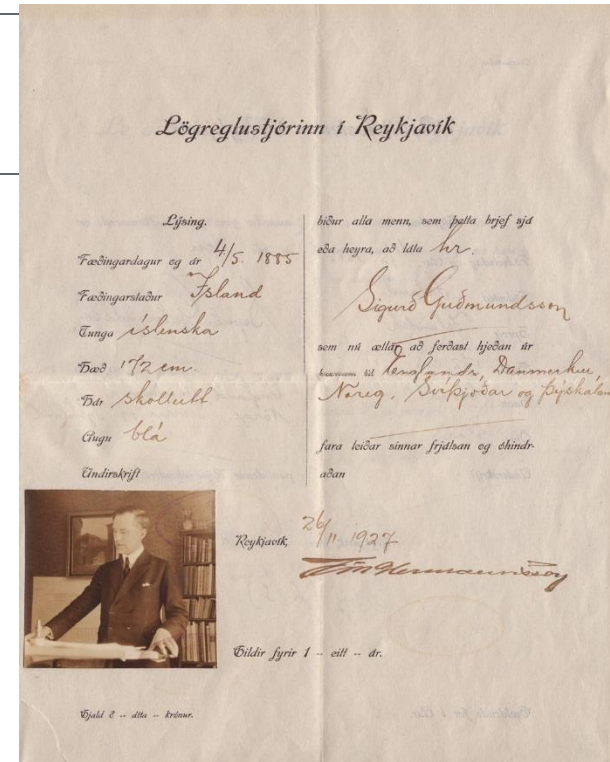 Lögreglustjórinn í Reykjavík
Lýsing.
Fæðingardagur og ár 4/5. 1885
Fæðingarstaður Ísland
Tunga íslenska
Hæð 172 cm.
Hár skolleitt
Augu blá
Undirskrift
biður alla menn, sem þetta brjef sjá
eða heyra, að láta hr.
Sigurð Guðmundsson
sem nú ætlar að ferðast hjeðan úr
til Danmerkur,
Noreg, Svíþjóðar og Þýskalan
fara leiðar sinnar frjálsan og ohindr-
aðan
Reykjavík, 26/11 1927
Hermannsson
Gildir fyrir 1 -- eitt -- ár.
Gjald 8 -- átta -- krónur.